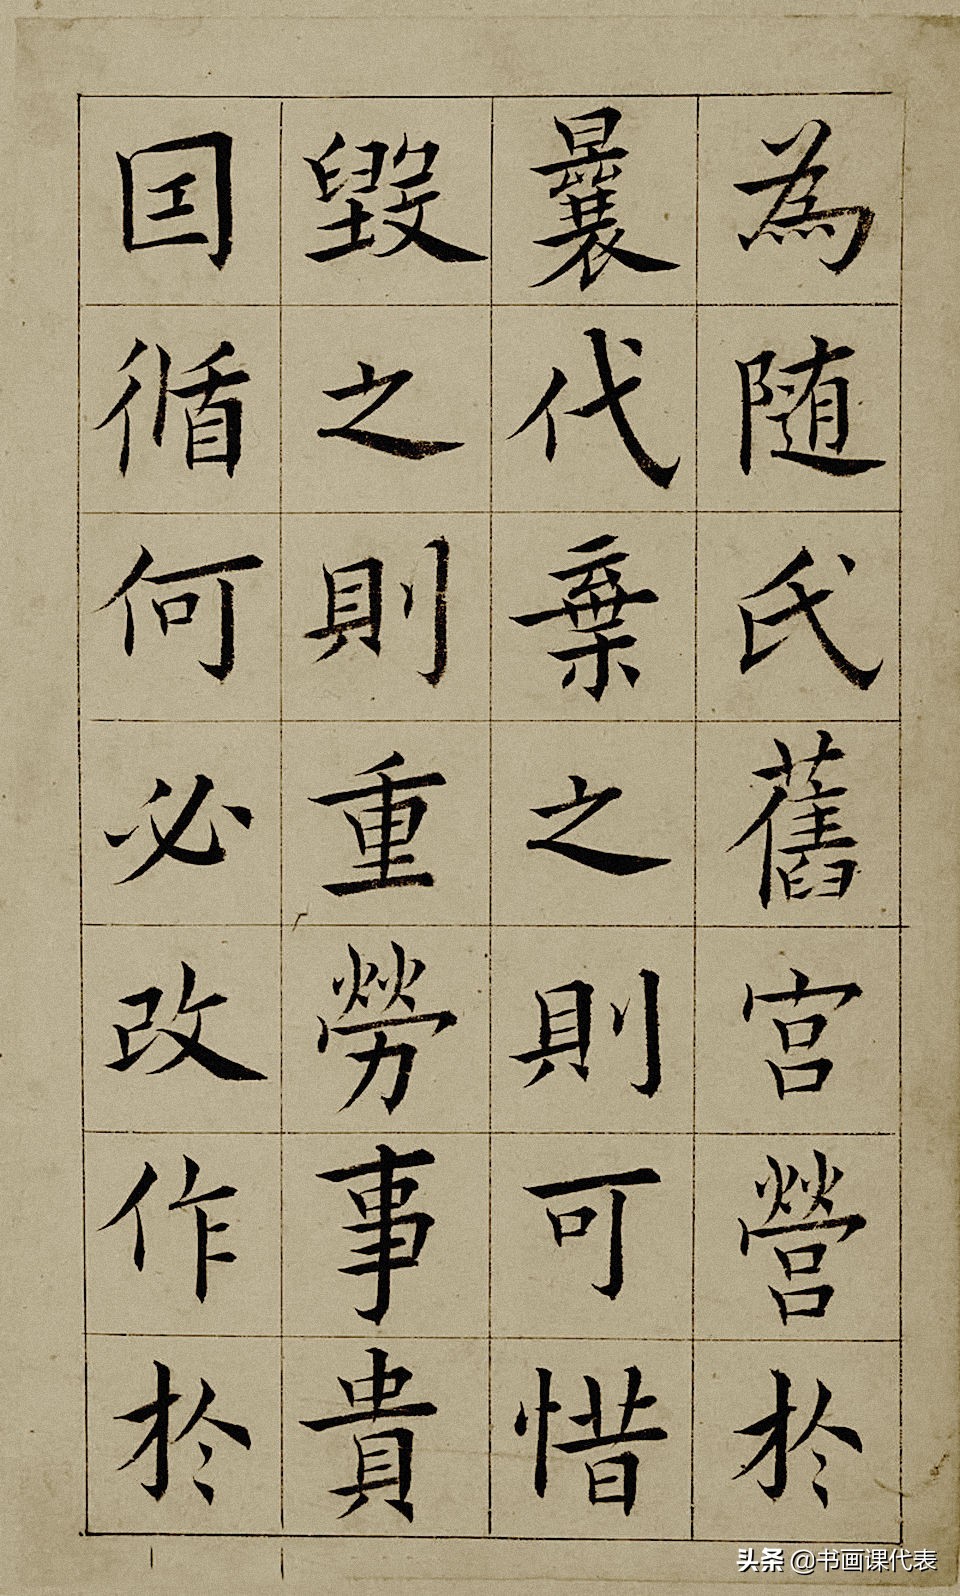 為随氏舊宮營於
曩代棄之則可惜
毀之則重勞事貴
囙循何必改作於
头条 @书画课代表